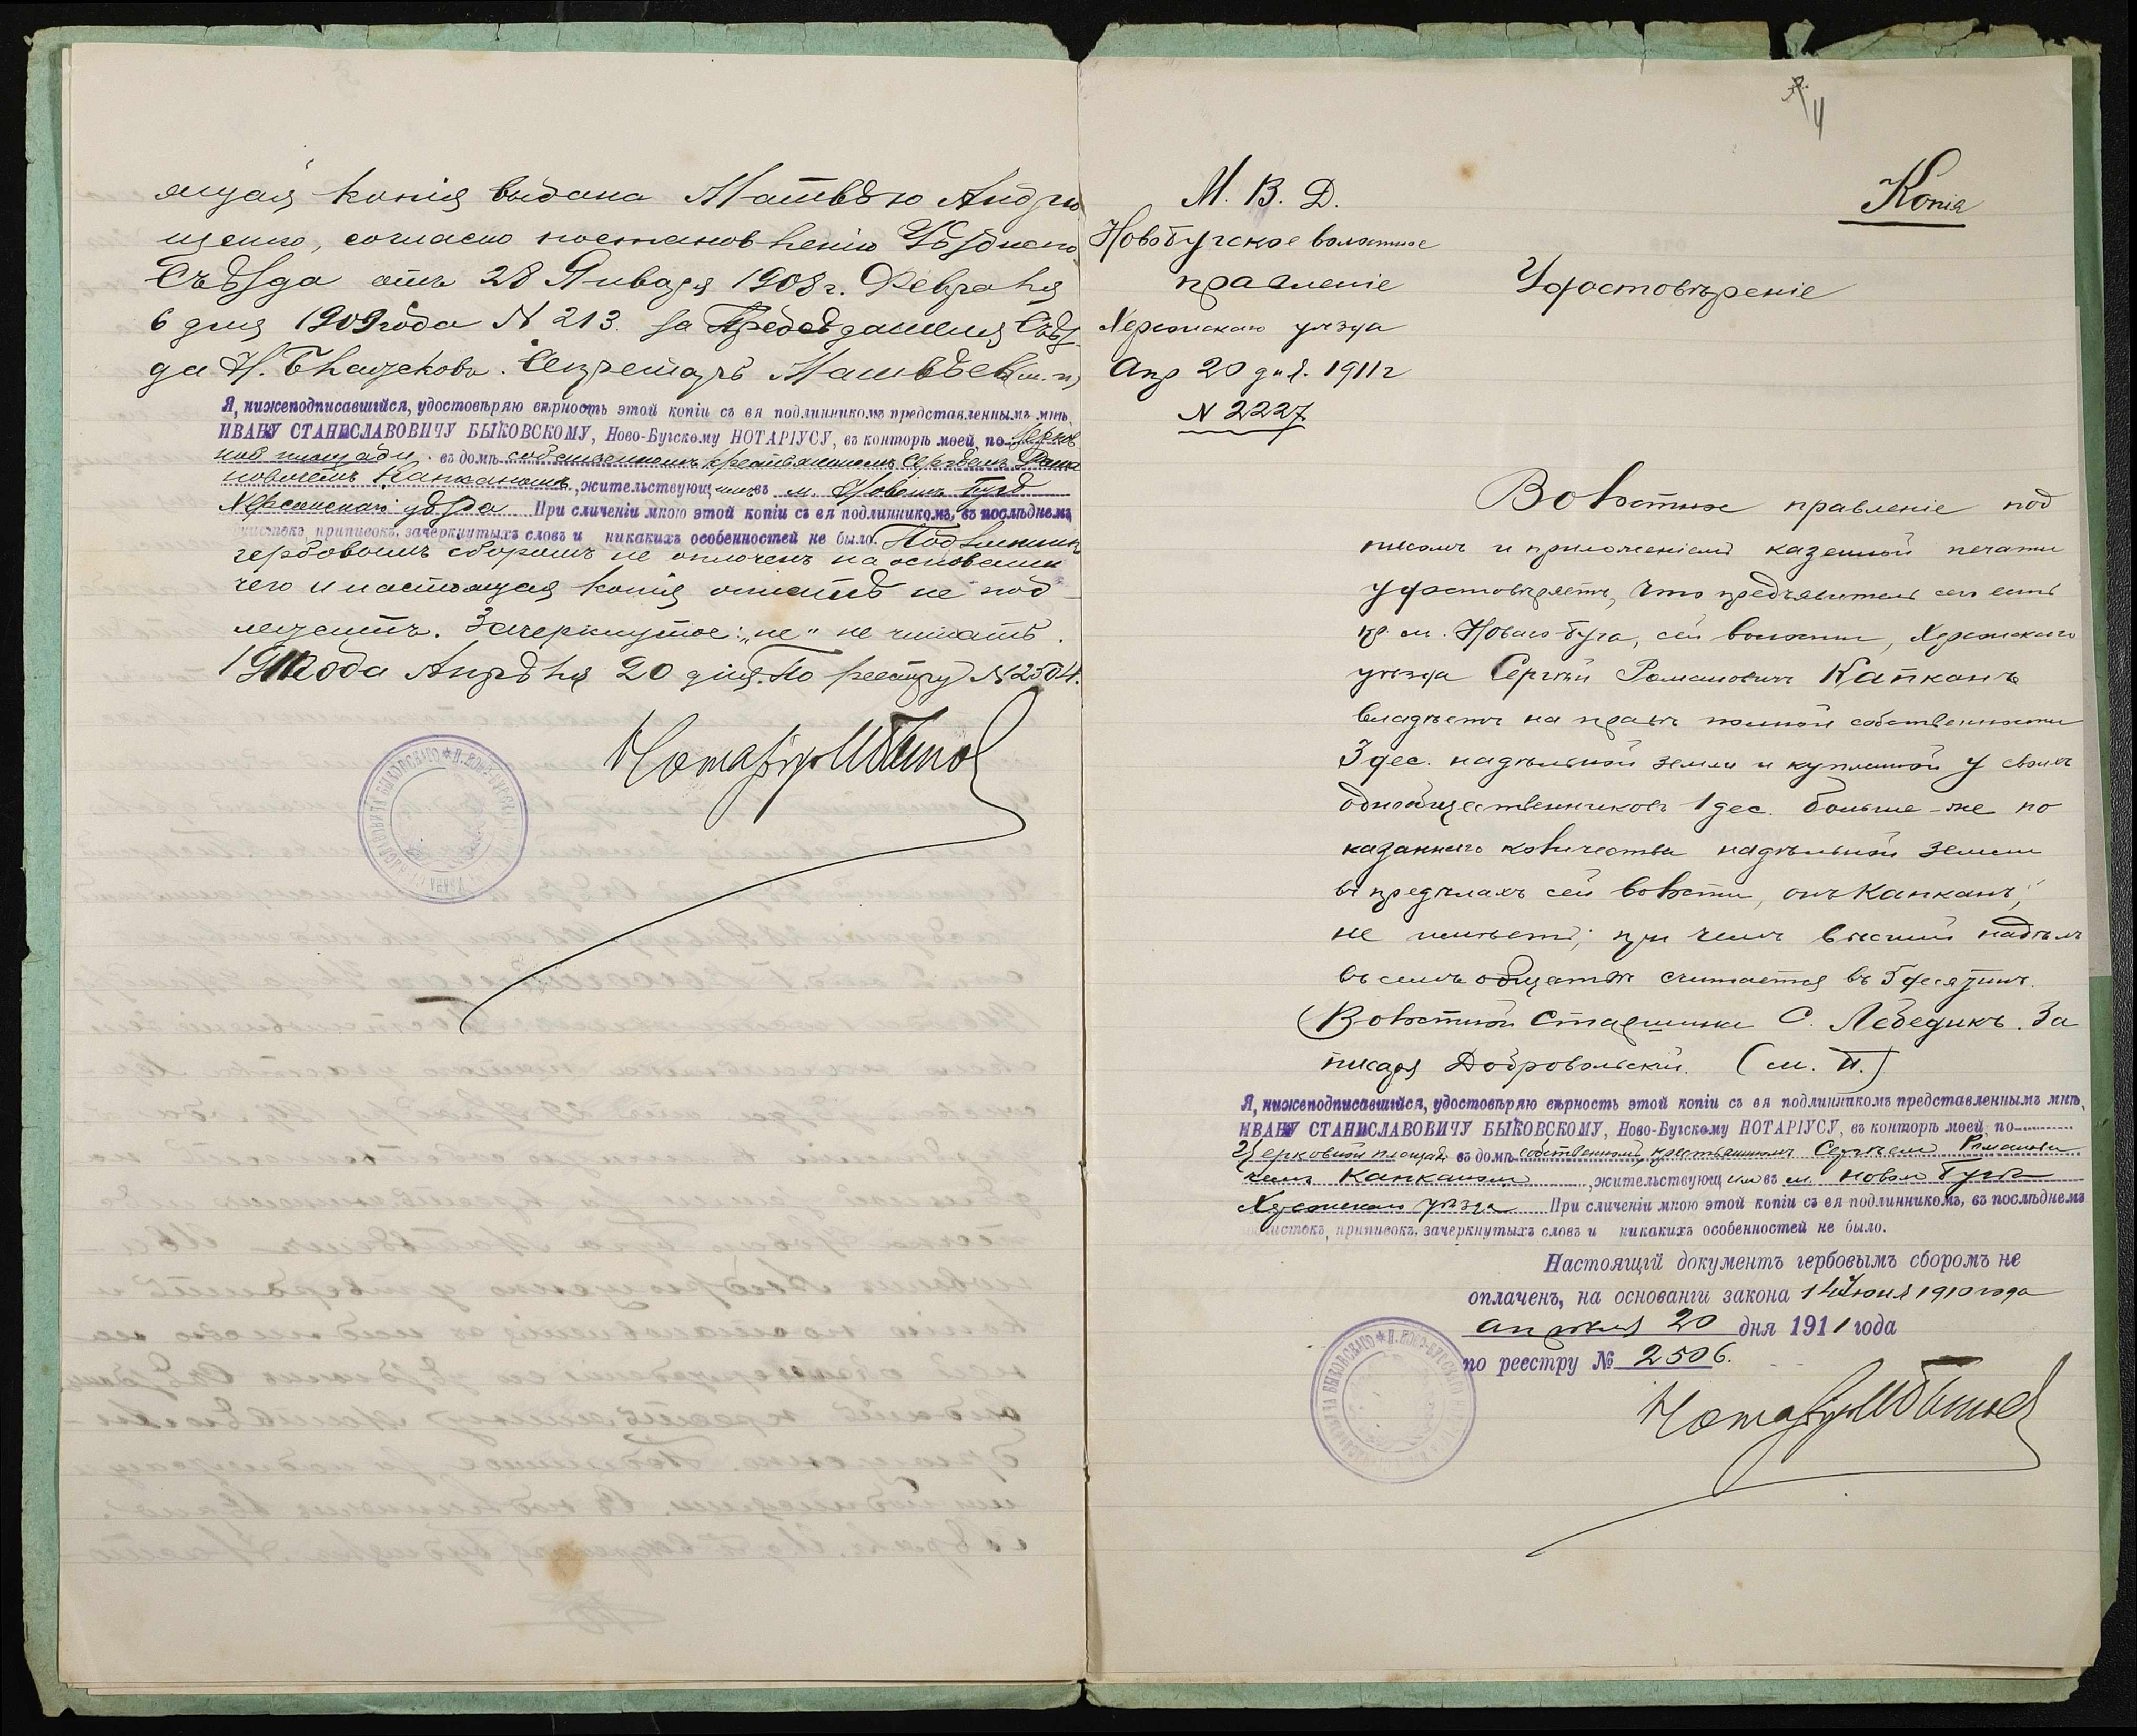 ящая копія выдана Матвѣю Андрю
щенко, согласно постановленію Уѣзднаго
Съѣзда отъ 28 Января 1908 г. Февраля
6 дня 1909 года № 213. За Предсѣдателя Съѣз
да Н. Секретарь Матвѣевъ (м. п.)
Я, нижеподписавшійся, удостовѣряю вѣрность этой копіи съ ея подлинникомъ представленнымъ мнѣ,
ИВАНУ СТАНИСЛАВОВИЧУ БЫКОВСКОМУ, Ново-Бугскому НОТАРІУСУ, въ конторѣ моей, по Церков
ной площади въ домѣ собственномъ крестьяниномъ Сергѣемъ Рома
новичемъ Капканомъ, жительствующимъ въ м. Новомъ Бугѣ
Херсонскаго уѣзда При сличеніи мною этой копіи съ ея подлинникомъ, въ послѣднемъ
приписокъ, зачеркнутыхъ словъ и никакихъ особенностей не было. Подлинникъ
гербовымъ сборомъ не оплоченъ на основаніи
чего и настоящая копія оплатѣ не под
лежитъ. Зачеркнутое: „не" не читать.
1911 года Апрѣля 20 дня. По реестру № 2504.
Нотаріусъ
4
М. В. Д.
Новобугское волостное
правленіе
Херсонскаго уѣзда
Апр 20 дня. 1911 г
№ 2227
Копія
Удостовѣреніе
Волостное правленіе под
писомъ и приложеніемъ казенной печати
удостовѣряетъ, что предъявитель сего есть
кр. м. Новаго Буга, сей волости, Херсонскаго
уѣзда Сергѣй Романовичъ Капканъ
владѣетъ на правѣ полной собственности
3 дес. надѣльной земли и купленной у своихъ
однообщественниковъ 1 дес. больше-же по
казаннаго количества надѣльной земли
въ предѣлахъ сей волости, онъ Капканъ,
не имѣетъ; при чемъ высшій надѣлъ
въ семъ обществѣ считается въ 5 десятинъ.
Волостной Старшина С. Лебедикъ. За
писаря Добровольскій. (м. п.)
Я, нижеподписавшійся, удостовѣряю вѣрность этой копіи съ ея подлинникомъ представленнымъ мнѣ,
ИВАНУ СТАНИСЛАВОВИЧУ БЫКОВСКОМУ, Ново-Бугскому НОТАРІУСУ, въ конторѣ моей, по
Церковной площади въ домѣ собственномъ, крестьяниномъ Сергѣемъ Романови
чемъ Капканомъ, жительствующимъ въ м. Новомъ Бугѣ
Херсонскаго уѣзда При сличеніи мною этой копіи съ ея подлинникомъ, въ послѣднемъ
подчистокъ, приписокъ, зачеркнутыхъ словъ и никакихъ особенностей не было.
Настоящій документъ гербовымъ сборомъ не
оплаченъ, на основаніи закона 14 Іюня 1910 года
апрѣля 20 дня 1911 года
по реестру № 2506.
Нотаріусъ